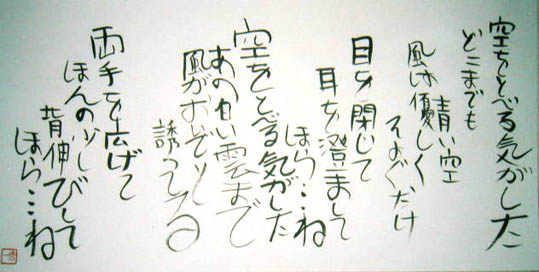 空をとべる気がした
どこまでも
青い空
風は優しく
そよぐだけ
目を閉じて
耳を澄まして
ほら・・ね
空をとべる気がした
あの白い雲まで
風がおいでよと
誘ってる
両手を広げて
ほんの少し
背伸びして
ほら・・ね